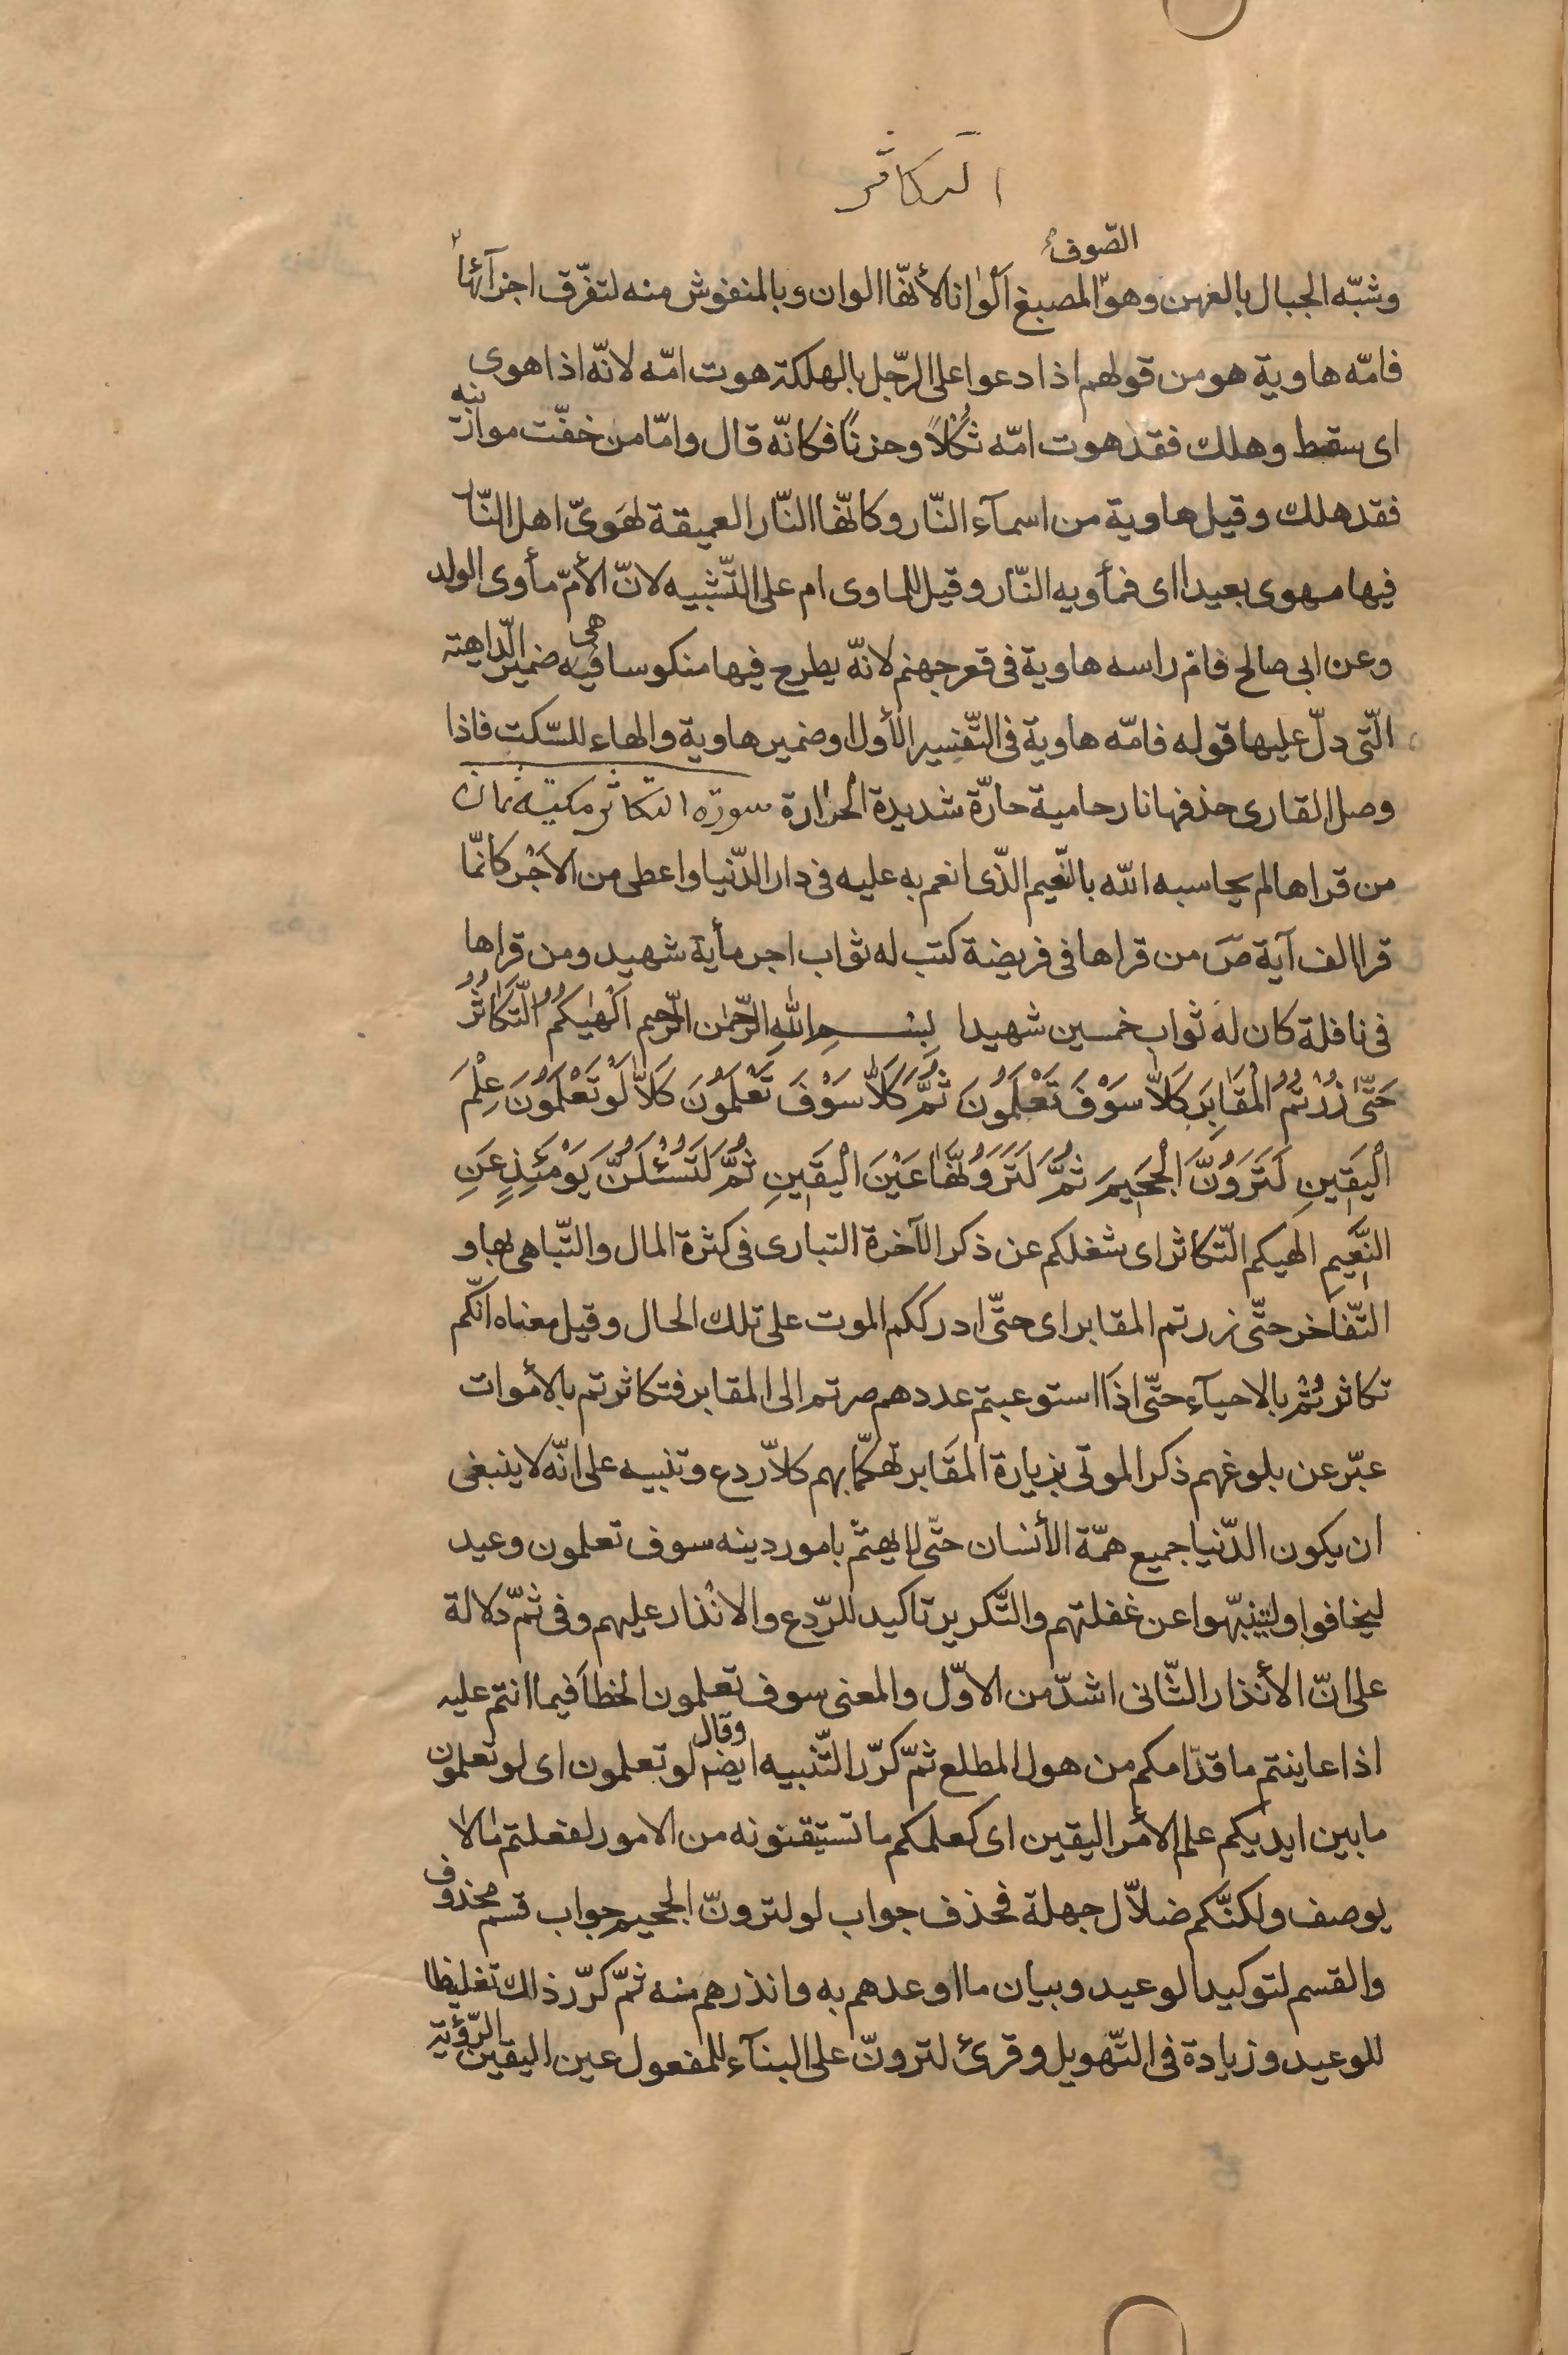 التكاثر
وشبّه الجبال بالعهن وهو الصّوف المصبغ الوانا لأنّها الوان وبالمنفوش منه لتفرّق اجزآئها
فامّه هاوية هو من قولهم اذا دعوا على الرّجل بالهلكة هوت امّه لانّه اذا هوى
اى سقط وهلك فقد هوت امّه ثُكلاً وحزنًا فكانّه قال وامّا من خفّت موازينه
فقد هلك وقيل هاوية من اسمآء النّار وكانّها النّار العميقة لهَوىّ اهل النّار
فيها مهوى بعيدا اى فمأويه النّار وقيل للماوى ام على التّشبيه لانّ الأمّ مأوى الولد
وعن ابى صالح فامّ راسه هاوية فى قعر جهنم لانّه يطرح فيها منكوسا فيه هى ضمير الدّاهية
الّتى دلّ عليها قوله فامّه هاوية فى التّفسير الأول او ضمير هاوية والهاء للسّكت فاذا
وصل القارى حذفها نار حامية حارّة شديدة الحرارة سورة التكاثر مكيّة ثمان
من قراها لم يحاسبه الله بالنّعيم الذّى انعم به عليه فى دار الدّنيا واعطى من الاَجْر كانّما
قرا الف آية صَ من قراها فى فريضة كتب له ثواب اجر مأية شهيد ومن قراها
فى نافلة كان له ثواب خمسين شهيدا بِسْمِ اللهِ الرّحمٰن الرّحيم اَلْهٰيكُمُ التَّكَاثُرُ
حَتّىٰ زُرْتُمُ الْمَقَابِرَ كَلاّ سَوْفَ تَعْلَمُونَ ثُمَّ كَلاّ سَوْفَ تَعْلَمُونَ كَلاّ لَوْ تَعْلَمُونَ عِلْمَ
الْيَقِينِ لَتَرَوُنَّ الْجَحِيمَ ثُمَّ لَتَرَوُنَّهَا عَيْنَ الْيَقِينِ ثُمَّ لَتُسْئَلُنَّ يَوْمَئِذٍ عَنِ
النَّعِيمِ الهيكم التّكاثر اى شغلكم عن ذكر الآخرة التبارى فى كثرة المال والتّباهى بها و
التّفاخر حتّى زرتم المقابر اى حتّى ادرككم الموت على تلك الحال وقيل معناه انّكم
تكاثرتُمْ بالاحيآء حتّى اذا استوعبتم عددهم صرتم الى المقابر فتكاثرتم بالأموات
عبّر عن بلوغهم ذكر الموتى بزيارة المقَابر تهكّما بهم كلاّ ردع وتنبيه على انّه لا ينبغى
ان يكون الدّنيا جميع همّة الأنسان حتّى لا يهتمّ بامور دينه سوف تعلمون وعيد
ليخافوا ولينبّهوا عن غفلتهم والتّكرير تاكيد للرّدع والانْذار عليهم وفى ثمّ دلالة
على انّ الأنذار الثّانى اشدّ من الاوّل والمعنى سوف تعلمون الخطأ فيما انتم عليه
اذا عاينتم ما قدّامكم من هول المطلع ثمّ كرّر التّنبيه ايضا وقال لو تعلمون اى لو تعلمون
ما بين ايديكم علم الأمر اليقين اى كعلمكم ما تستيقنونه من الامور لفعلتم مٰا لاٰ
يوصف ولكنّكم ضلاّل جهلة فحذف جواب لو لترونّ الجحيم جواب قسم محذوف
والقسم لتوكيد الوعيد وبيان ما اوعدهم به وانذرهم منه ثمّ كرّر ذلك تغليظا
للوعيد وزيادة فى التّهويل وقرئ لترونّ على البنآء للمفعول عين اليقين الرّؤية